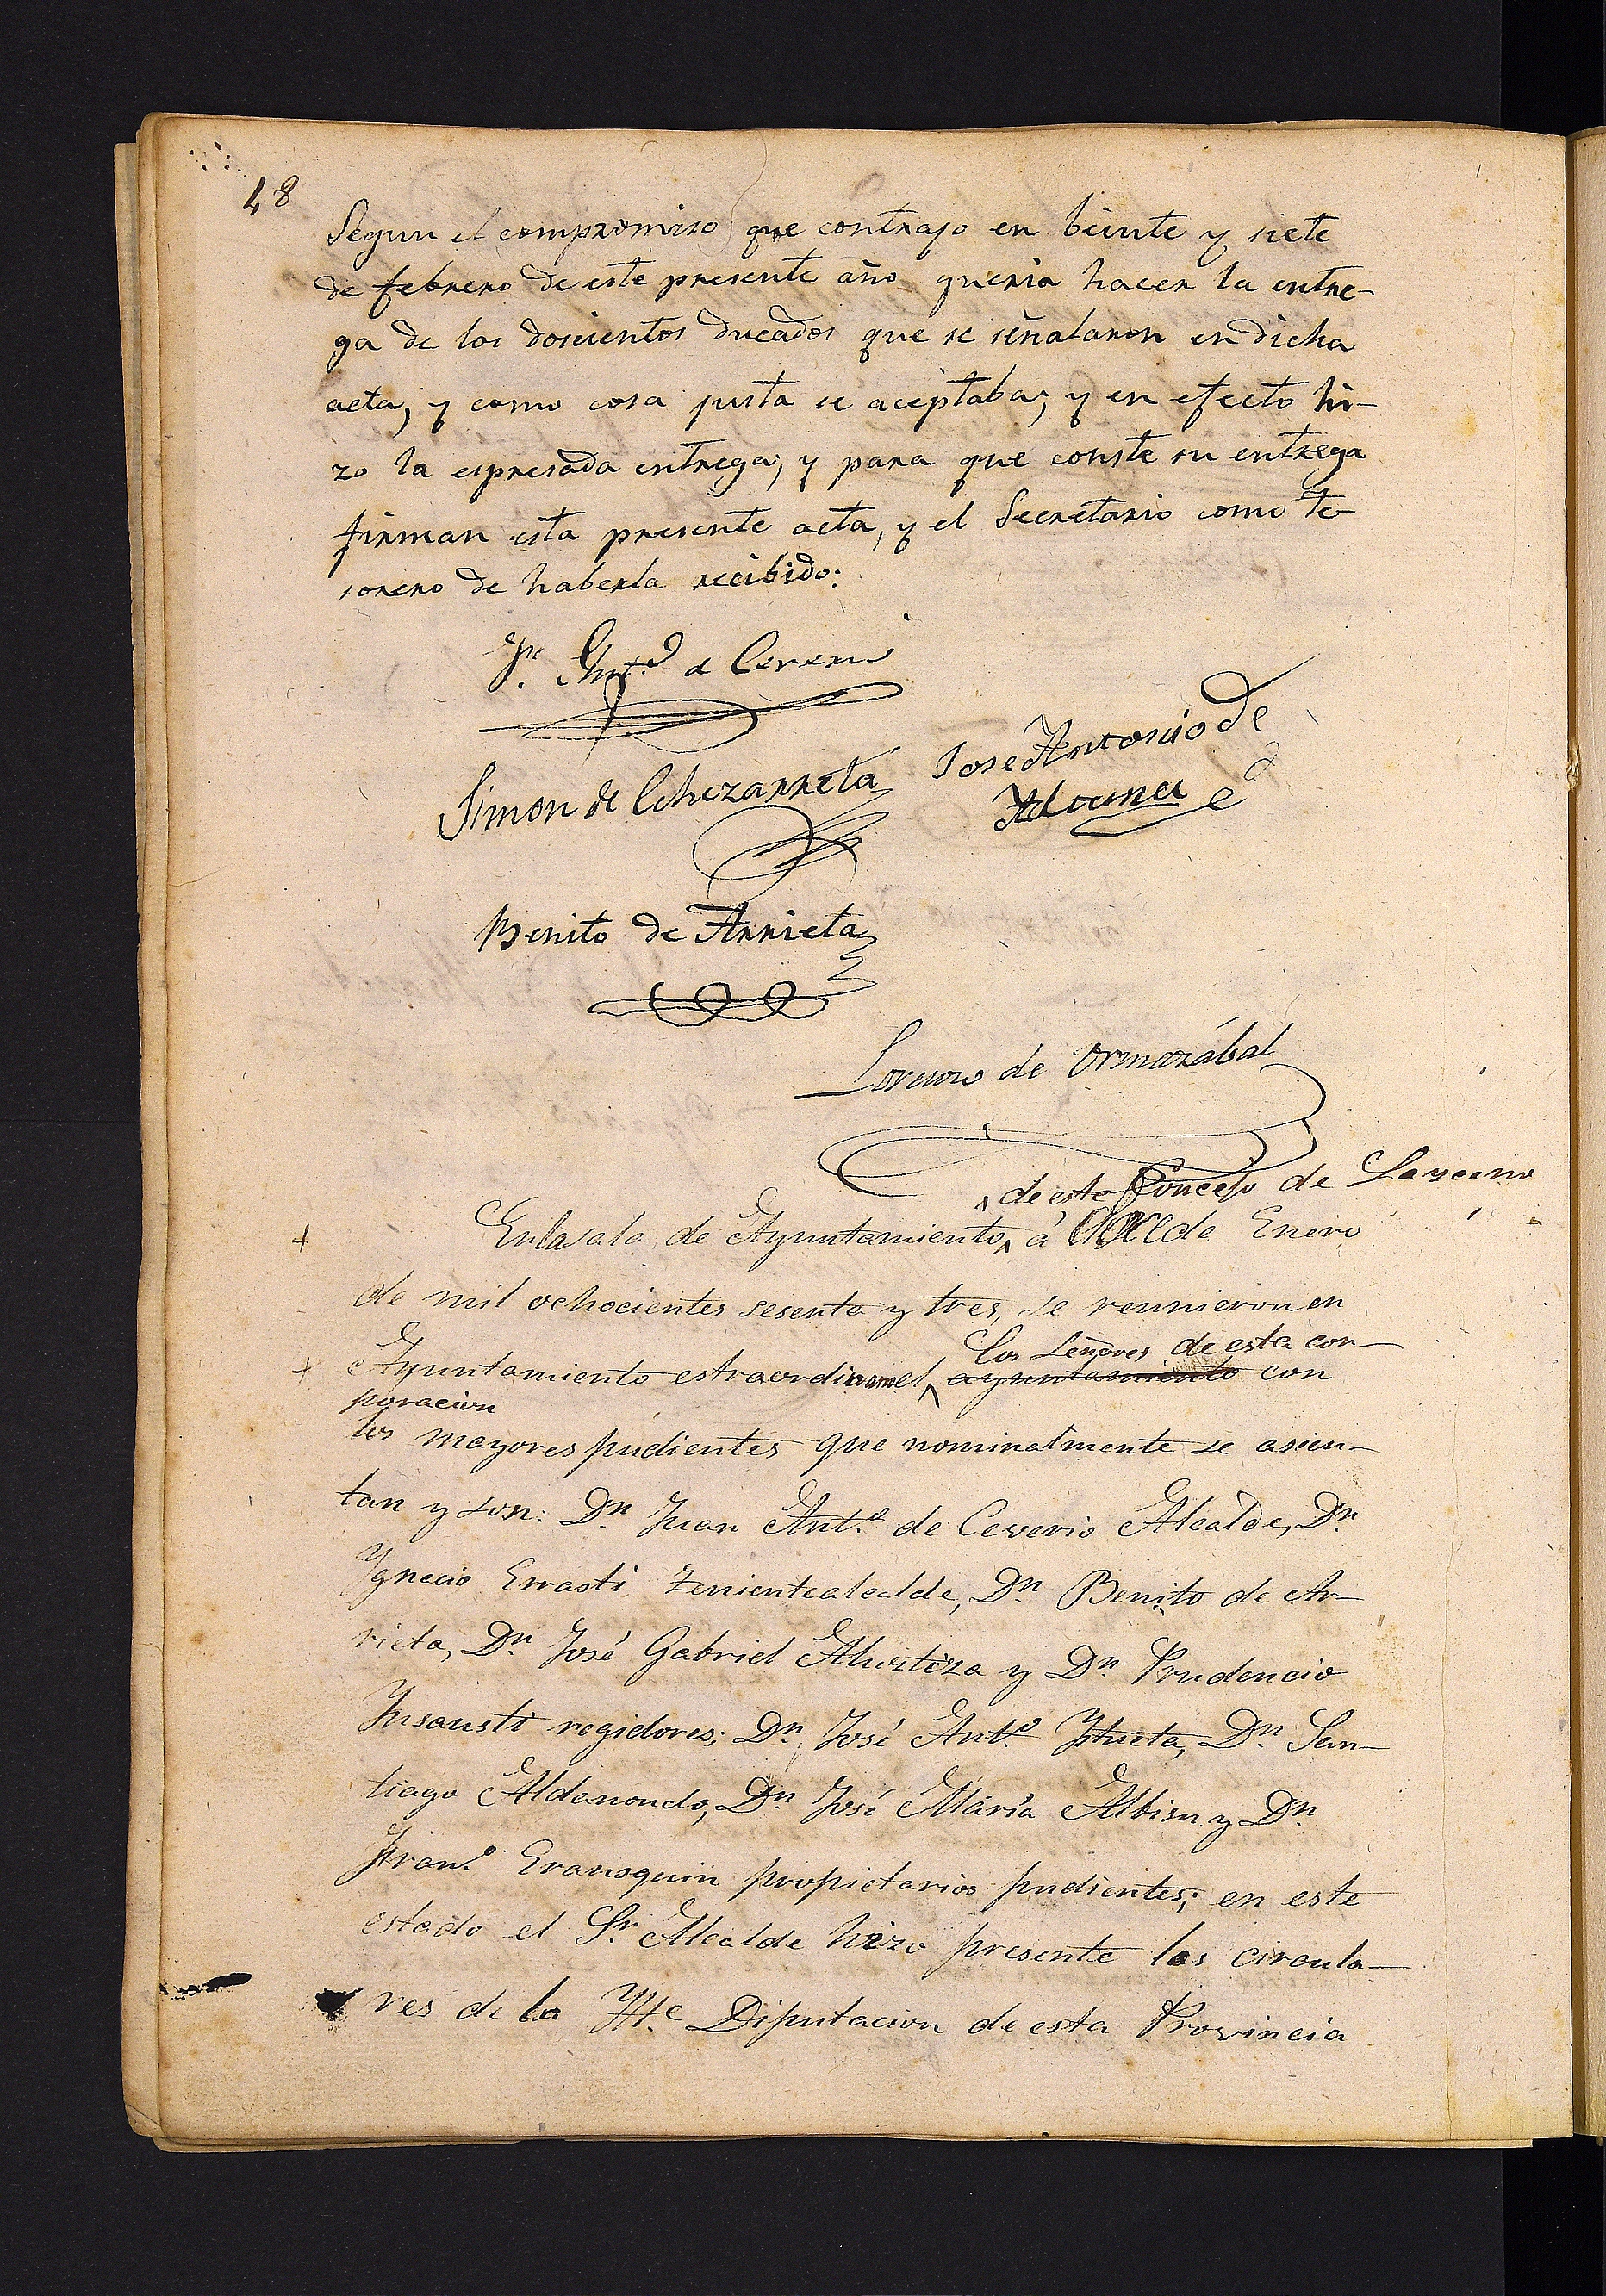 48
Segun el compromiso que contrajo en beinte y siete
de febrero de este presente año queria hacer la entre-
ga de los doscientos ducados que se señalaron en dicha
acta, y como cosa justa se aceptaba; y en efecto hi-
zo la espresada entrega; y para que conste su entrega
firman esta presente acta, y el Secretario como te-
sorero de haberla recibido:
Jn. Anto. de Ceverio
Simon de Echezarreta
Jose Antonio de
Aldcuna
Benito de Arrieta
Lorenzo de Ormazábal
de este Concejo de Lazcano
En la sala de Ayuntamiento, á de Enero
de mil ochocientos sesenta y tres, se reunieron en
los Señores de esta cor-
Ayuntamiento estraordi el ayuntamiento con
poracion
los mayores pudientes que nominalmente se asien-
tan y son: Dn. Juan Anto. de Ceverio Alcalde, Dn.
Ygnacio Errasti Tenientealcalde, Dn. Benito de Ar-
rieta, Dn. José Gabriel Alustiza y Dn. Prudencio
Insausti regidores; Dn. José Anto. Iztueta, Dn. San-
tiago Aldanondo, Dn. José María Albisu y Dn.
Frano. Eransquin propietarios pudientes; en este
estado el Sr. Alcalde hizo presente las circula-
res de la Ylte. Diputacion de esta Provincia